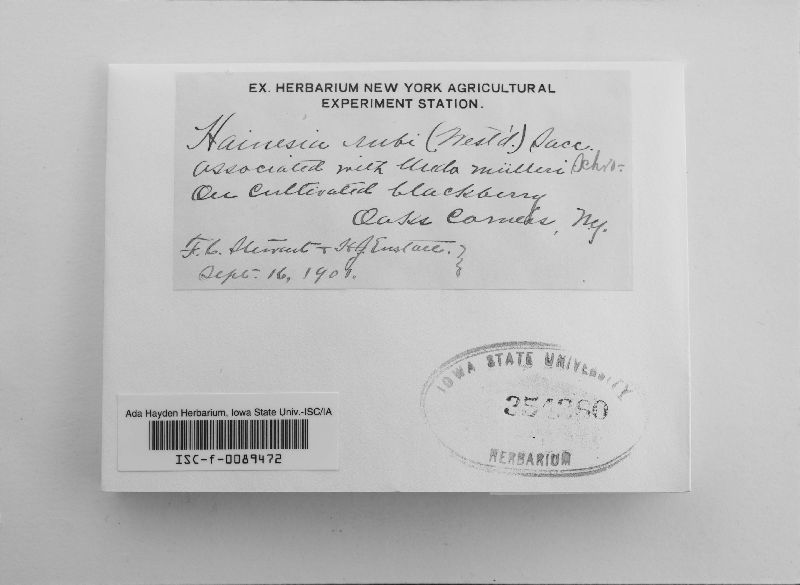 EX. HERBARIUM NEW YORK AGRICULTURAL
EXPERIMENT STATION.
Hainesia rubi (West'd.) Sacc.
associated with Uredo mülleri Schrö-
On cultivated blackberry
Oaks Corners, Ny.
F. C. Stewart & H. J. Eustace.
Sept. 16, 1901.
IOWA STATE UNIVERSITY
354360
HERBARIUM
Ada Hayden Herbarium, Iowa State Univ.-ISC/IA
ISC-f-0089472